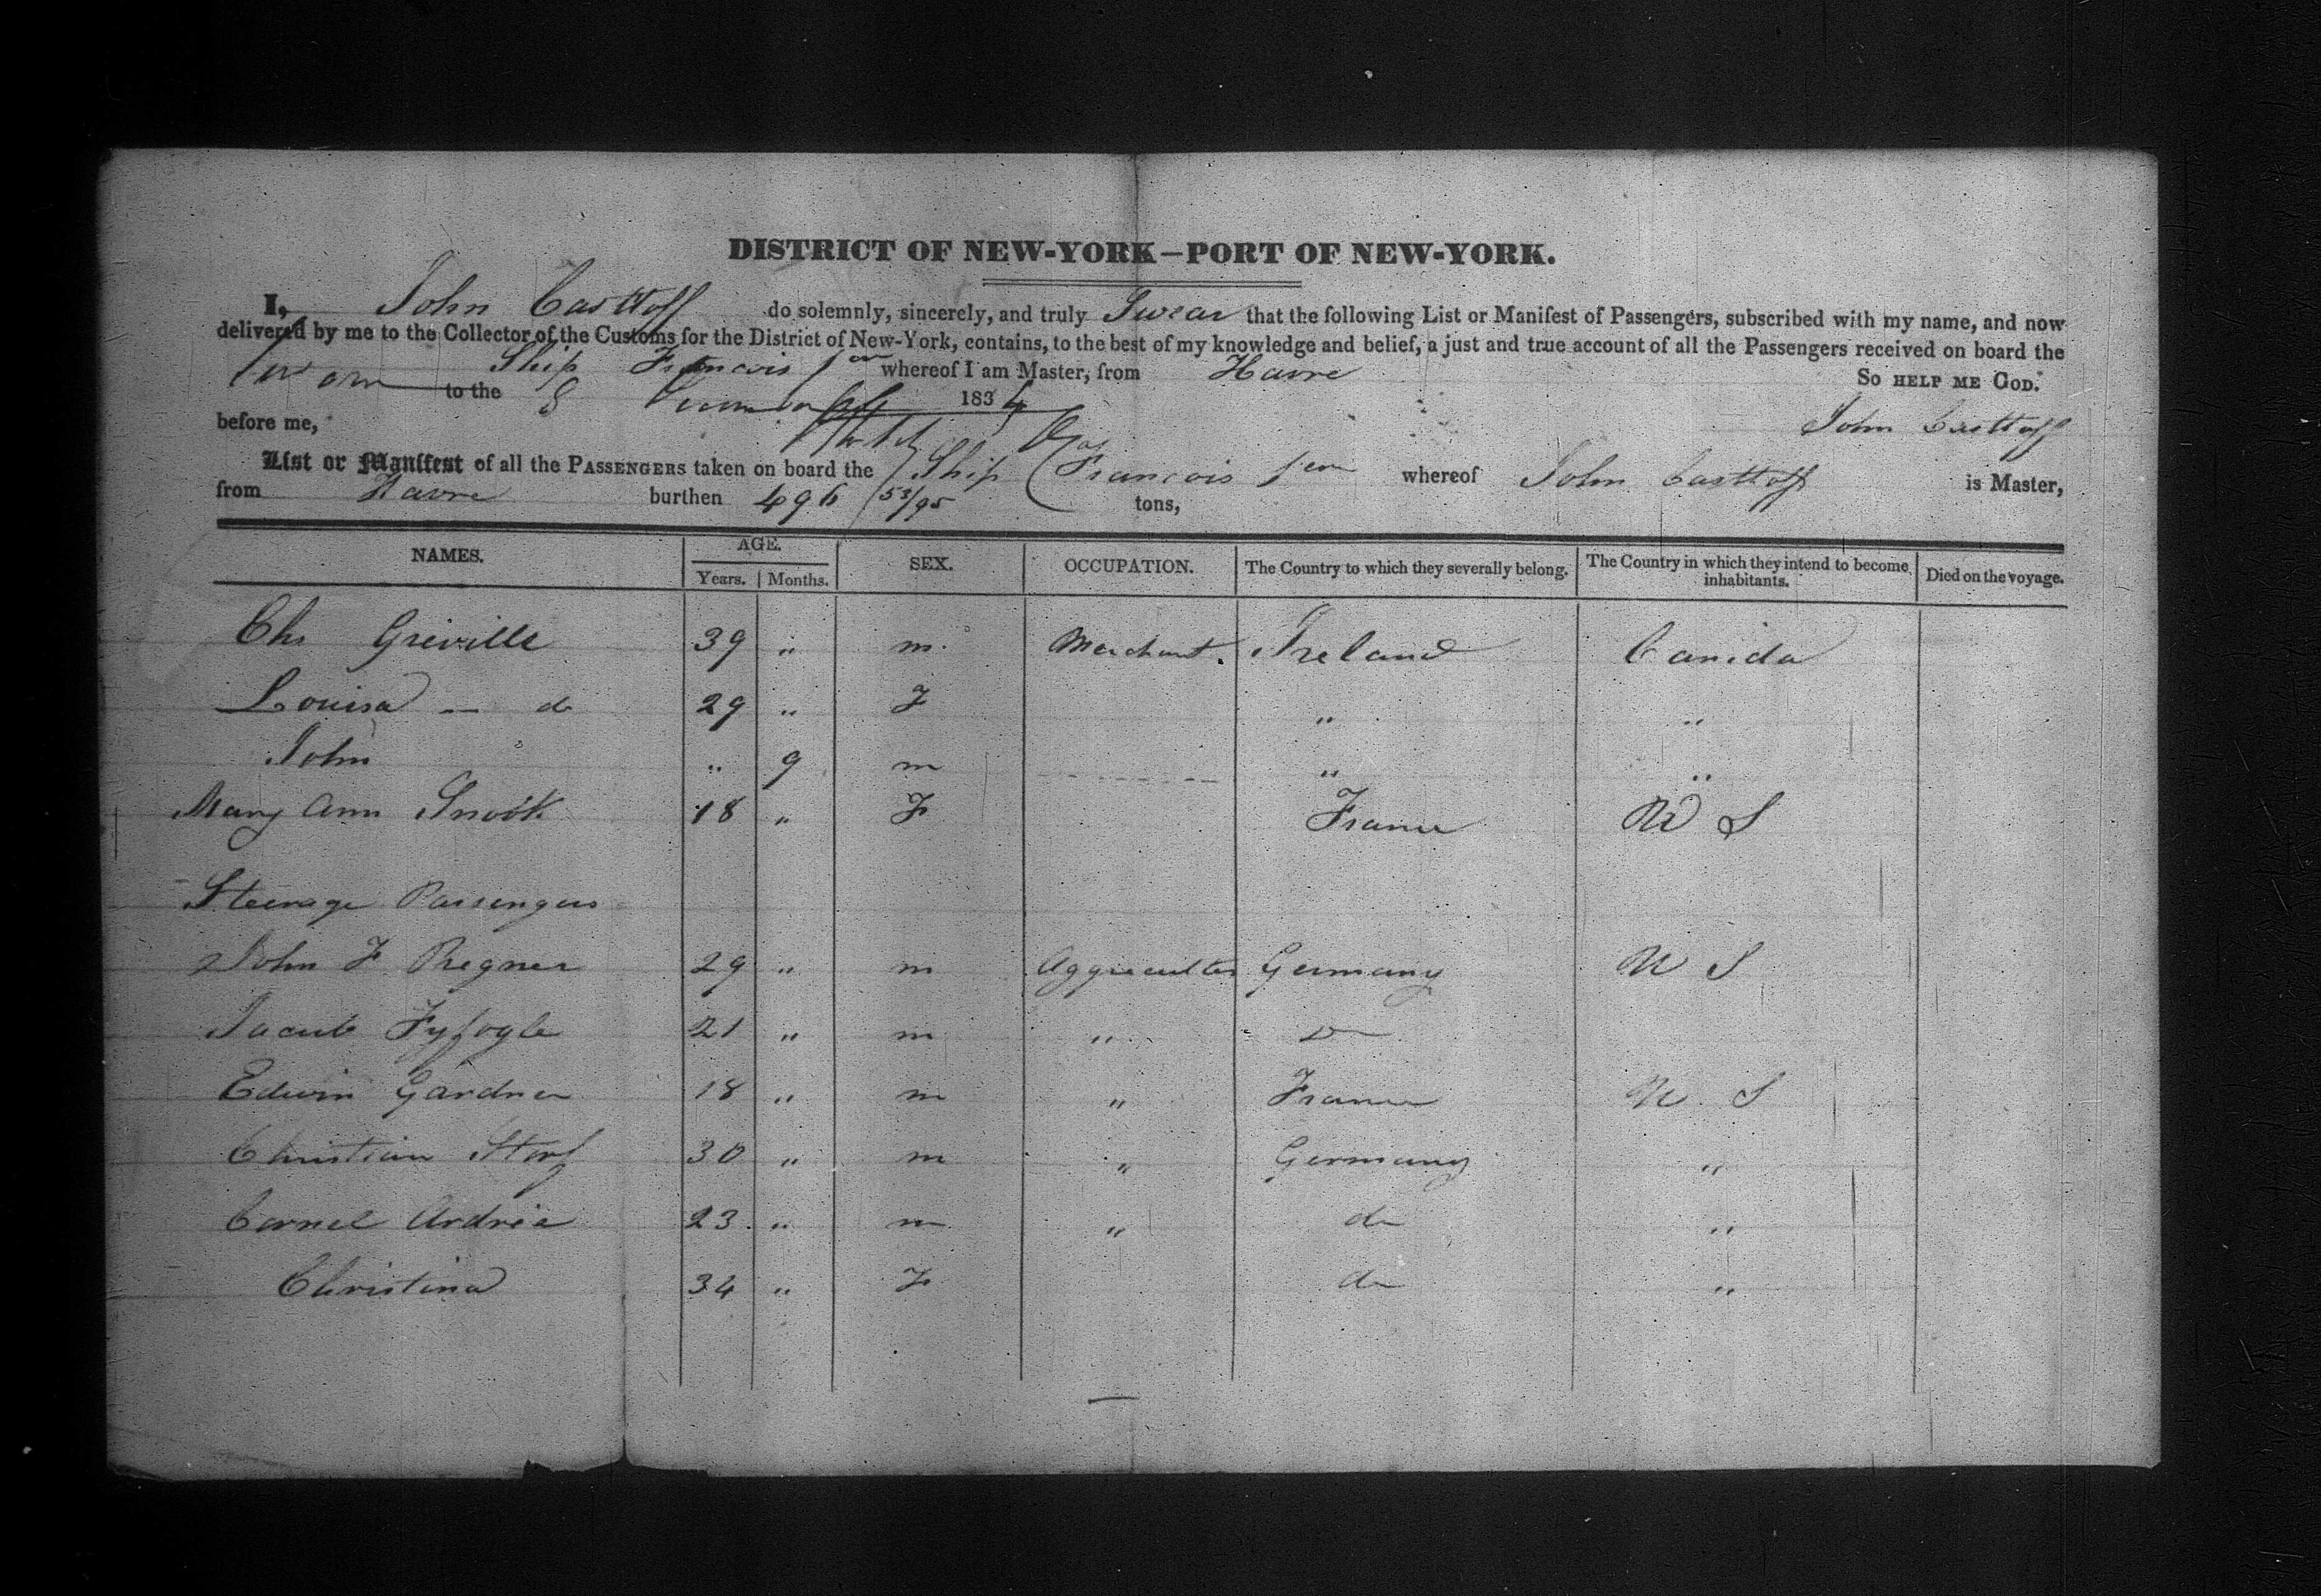 DISTRICT OF NEW-YORK—PORT OF NEW-YORK.
I, John Casttoff do solemnly, sincerely, and truly Swear that the following List or Manifest of Passengers, subscribed with my name, and now
delivered by me to the Collector of the Customs for the District of New-York, contains, to the best of my knowledge and belief, a just and true account of all the Passengers received on board the
Ship Francois 1er whereof I am Master, from Havre So HELP ME GOD.
Sworn to the 8 1834
before me, John Casttoff
List or Manifest of all the PASSENGERS taken on board the Ship Francois 1er whereof John Casttoff is Master,
from Havre burthen 496 53/95 tons,
NAMES. AGE. SEX. OCCUPATION. The Country to which they severally belong. The Country in which they intend to become inhabitants. Died on the voyage.
Years. Months.
Chs Greville 39 " m. Merchant. Ireland Canida
Louisa — do 29 " F " "
John " 9 m " "
Mary Ann Snook 18 " F France U S
Steerage Passengers
John F Regner 29 " m Germany U S
Jacub Fyfogle 21 " m " Do
Edwin Gardner 18 " m " France U S
Christian Storf 30 " m " Germany "
Cornel Ardrie 23 " m " do "
Christina 34 " F do "